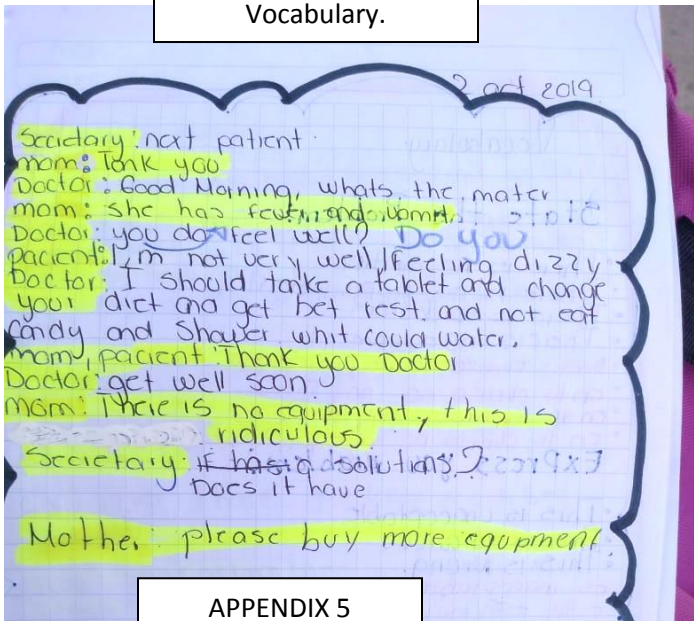 Vocabulary.
2 oct 2019
Secretary: next patient.
mom: Tank you
Doctor: Good Morning, whats the mater
mom: she has and vomit.
Doctor: you do feel well? Do you
pacient: I,m not very well, Feeling dizzy
Doctor: I should take a tablet and change
your diet and get bet rest. and not eat
candy and shower whit could water.
mom, pacient Thank you Doctor
Doctor: get well soon
mom: There is no equipment, this is
ridiculous
Secretary: it has a solutions?
Does it have
Mother: please buy more equopment
APPENDIX 5